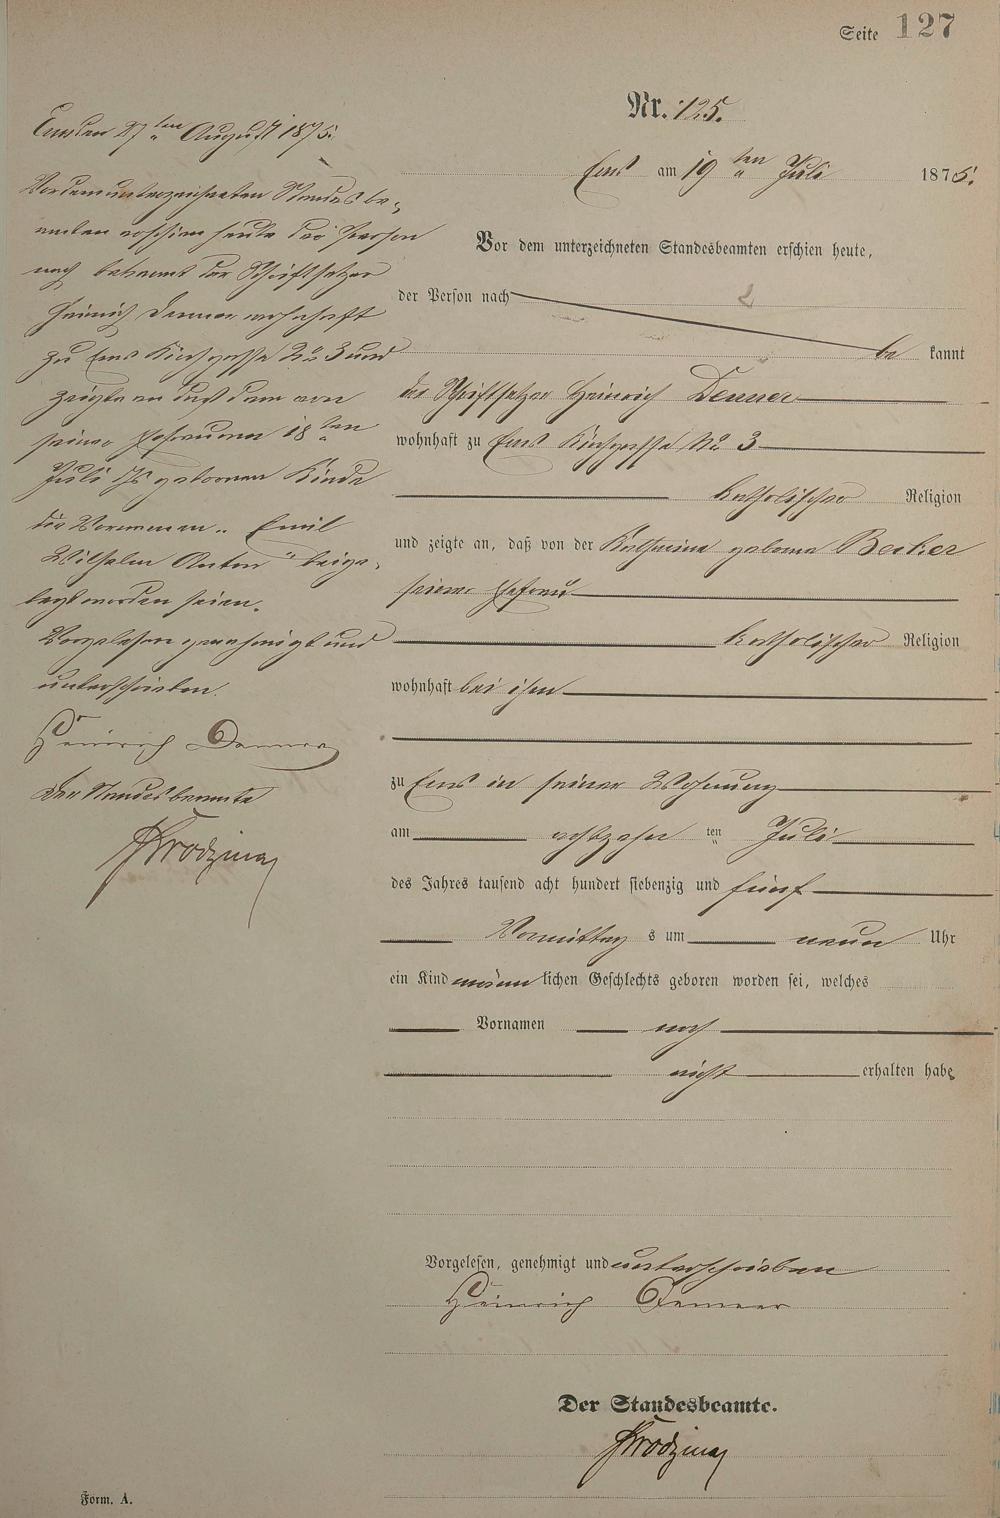 Seite 127
Nr. 125.
Ems am 19 ten Juli 1875.
Vor dem unterzeichneten Standesbeamten erschien heute,
der Person nach
be kannt
der Schriftsetzer Heinrich Denner
wohnhaft zu Ems Kirchgasse No 3
katholischer Religion
und zeigte an, daß von der Katharina geborne Becker
seiner Ehefrau
katholischer Religion
wohnhaft bei ihm
zu Ems in seiner Wohnung
am achtzehn ten Juli
des Jahres tausend acht hundert siebenzig und fünf
Vormittag s um neun Uhr
ein Kind männ lichen Geschlechts geboren worden sei, welches
Vornamen noch
nicht erhalten habe
Vorgelesen, genehmigt und unterschrieben
Heinrich Denner
Der Standesbeamte.
Form. A.
Ems den 27 ten August 1875.
Vor dem unterzeichneten Standesbe-
amten erschien heute der Person
nach bekannt der Schriftsetzer
Heinrich Denner wohnhaft
zu Ems Kirchgasse No 3 und
zeigte an daß dem von
seiner Ehefrau am 18 ten
Juli Js geborenen Kinde
die Vornamen „Emil
Wilhelm Anton" beige-
legt worden seien.
Vorgelesen genehmigt und
unterschrieben.
Heinrich Denner
Der Standesbeamte